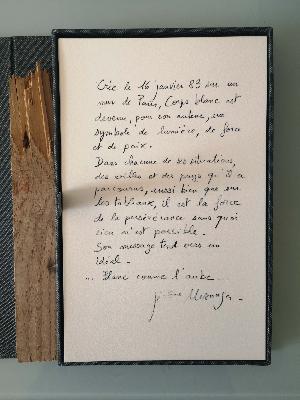 Crée le 16 janvier 83 sur un
mur de Paris, Corps blanc est
devenu, pour son auteur, un
symbole de lumière, de force
et de paix.
Dans chacune de ses situations,
des villes et des pays qu'il a
parcourus, aussi bien que sur
les tableaux, il est la force
de la persévérance sans quoi
rien n'est possible.
Son message tend vers un
idéal.
... Blanc comme l'aube.
Mesnager.